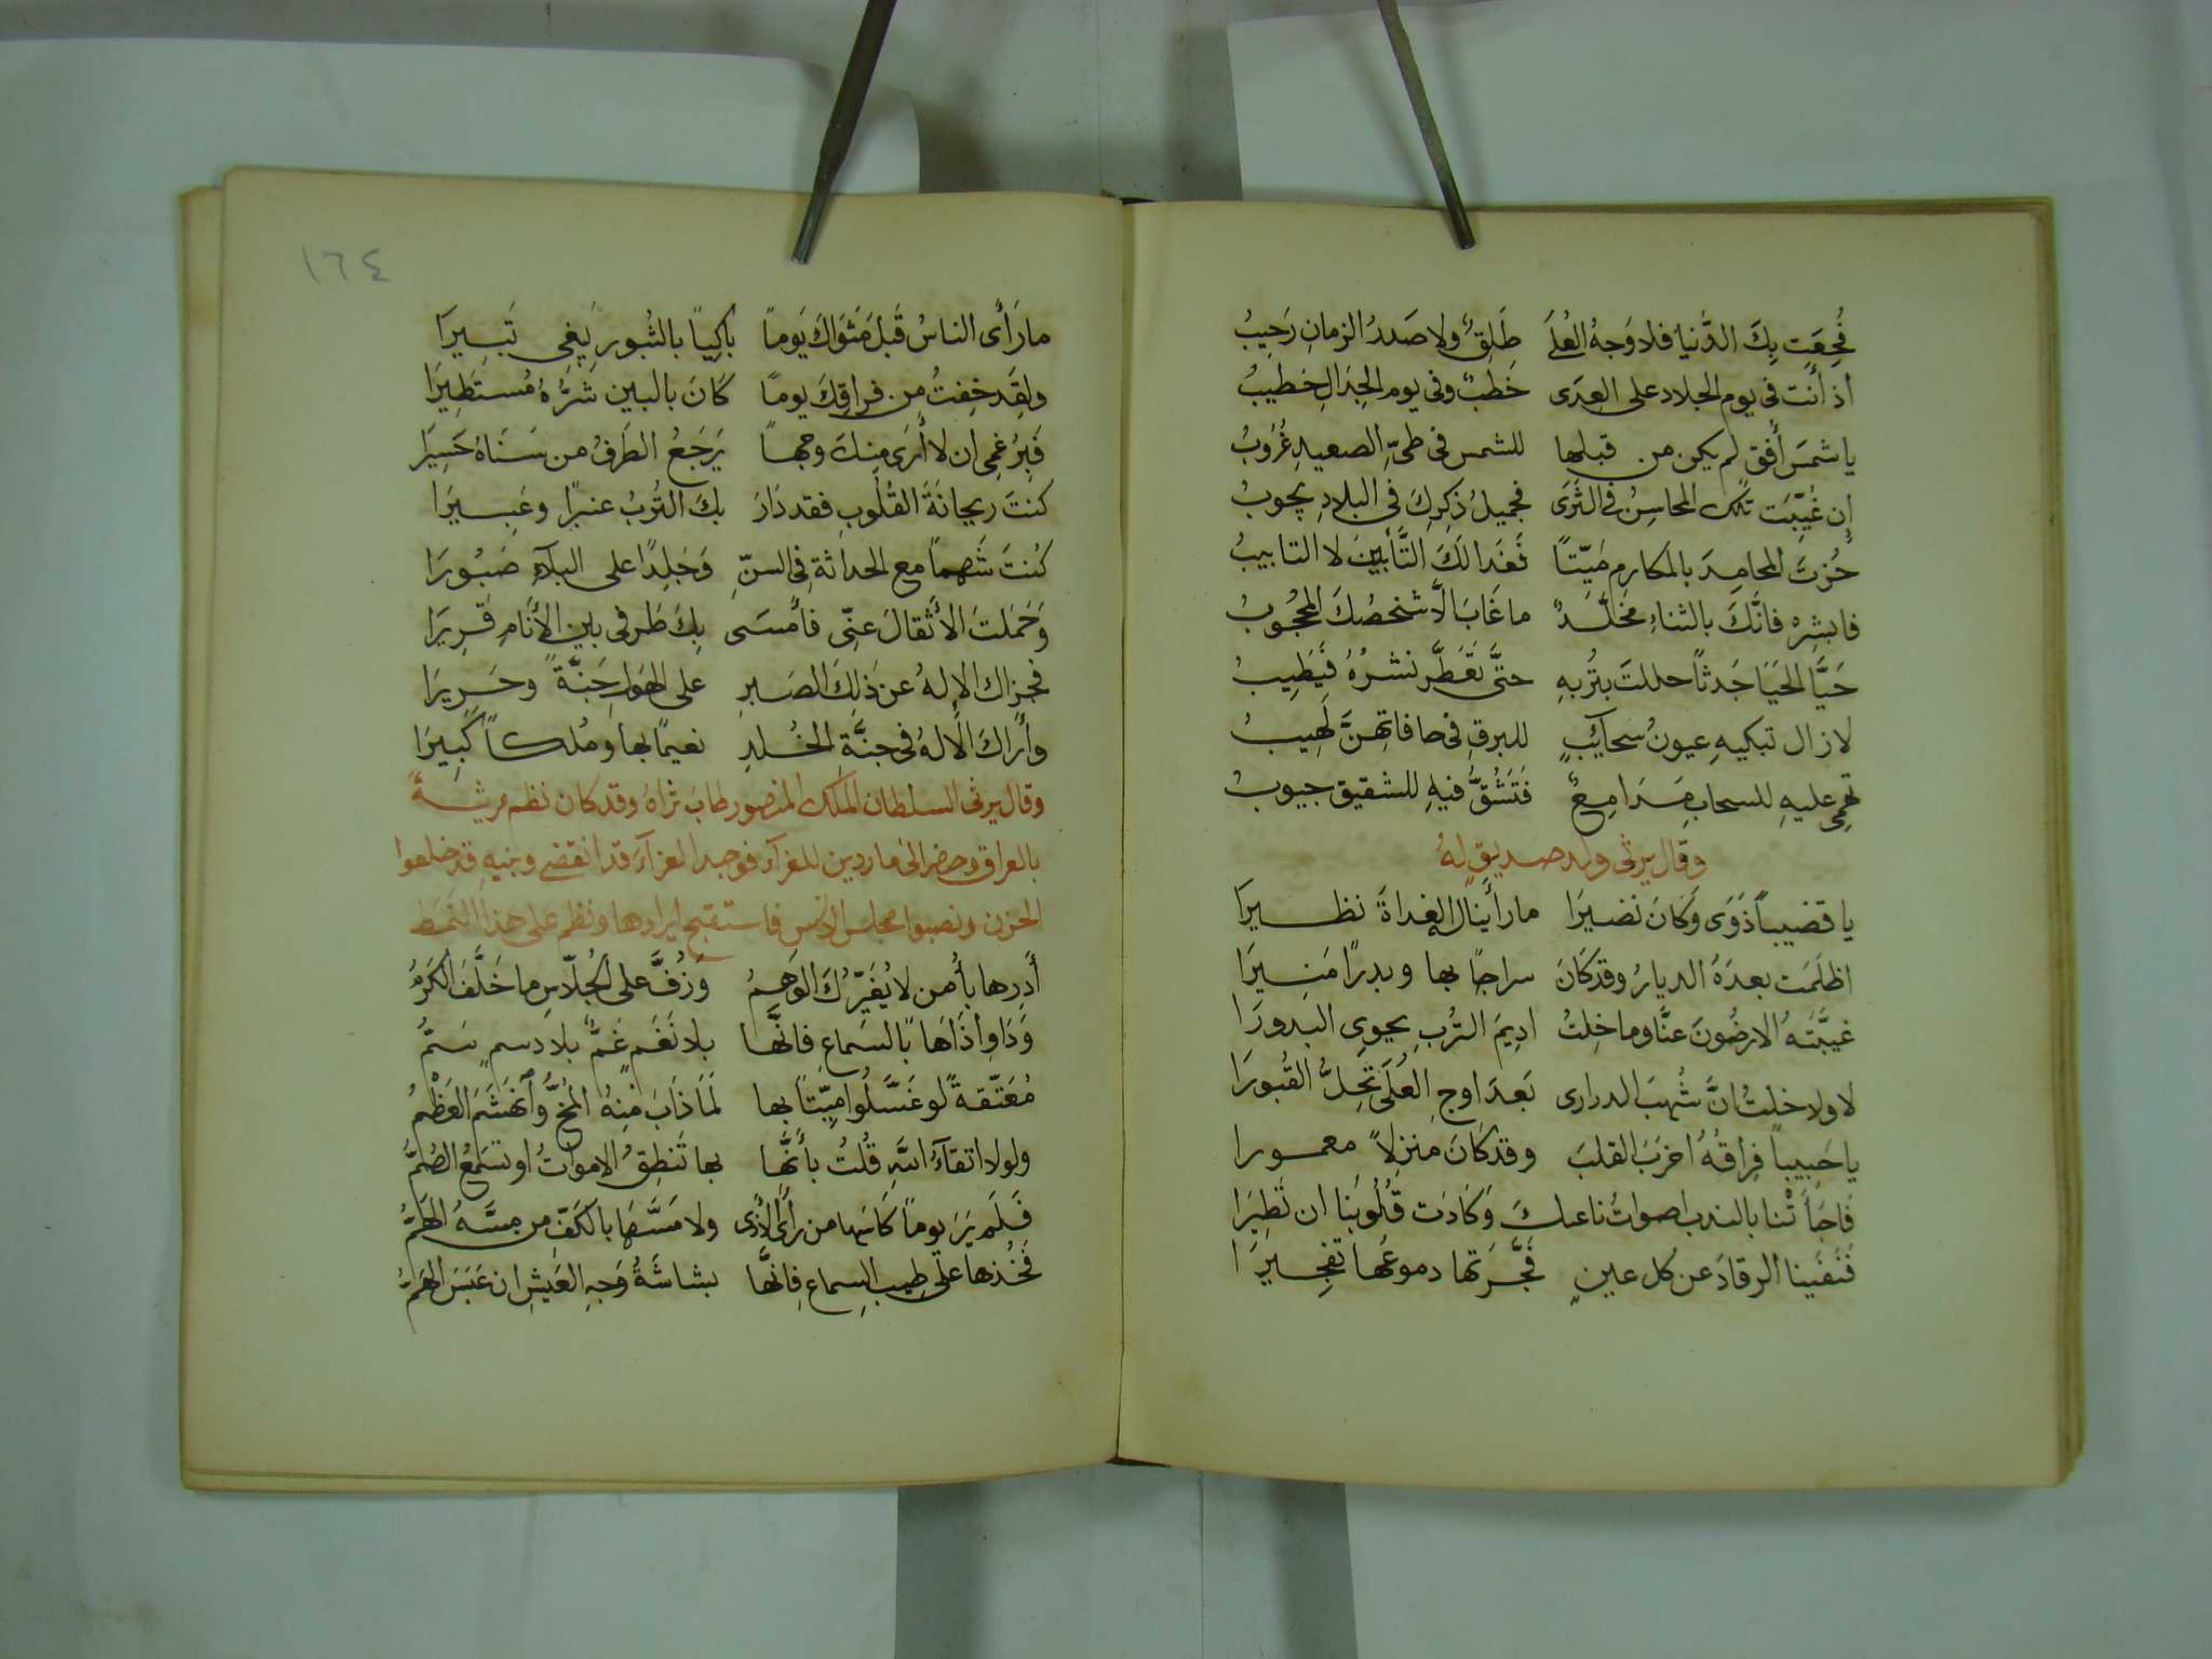 فُجِعَت بِكَ الدُّنيا فلا وَجهُ العُلَى طَلِقٌ ولا صَدرُ الزمانِ رَحِيبُ
اذ أنت في يوم الجلاد على العِدَى خَطبٌ وفي يوم الجِدَالِ خطيبُ
يا شمسَ أُفق لم يكن من قبلها للشمس في طيّ الصعيدِ غُرُوبُ
إن غُيِّبَت تلك المحاسِنُ في الثَرَى فجميلُ ذِكرِكَ في البلادِ يجوبُ
حُزتَ المحامِدَ بالمكارِمِ مَيّتًا فَغَدا لَكَ التَّأبينَ لا التابيبُ
فابشِره فانَّكَ بالثناءِ مخلّدٌ ما غَابَ الَّا شخصُكَ المحجُوبُ
حَيَّا الحَيَا جَدثًا حللتَ بتُربهِ حتَّى تَعَطَّر نشرُهُ فَيَطِيبُ
لا زال تبكيهِ عيونُ سحائِبٍ للبرقِ في حافاتِهنَّ لَهِيبُ
تَهمِى عليهِ للسحابِ مَدامِعٌ فَتَشُقُّ فيهِ للشقيق جيوبُ
وقال يرثي ولد صديقٍ لهُ
يا قضيباً ذَوَى وَكَانَ نضيرَا ما رأينا لهُ الغداةَ نظيرَا
اظلَمَت بعدَهُ الديارُ وقد كَانَ سراجًا بها وبدرًا مَنِيرَا
غيبَّتهُ الارضُونَ عنَّا وما خِلتُ ادِيمَ التُرْبِ يحوي البدورَا
لا ولا خلتُ انَّ شُهبَ الدرارى بَعدَ اوجِ العُلَى تَحِلُّ القُبورَا
يا حَبِيباً فِراقُهُ اخرَبَ القلبَ وقد كَانَ منزِلاً معمورا
فَاجأَتْنا بالندب اصواتُ ناعيكَ وَكَادَت قُلُوبَنا ان تَطِيرَا
فَنَفَينا الرقادَ عن كل عينٍ فجَّرَتها دموعُها تفجيرَا
١٦٤
ما رَأَى الناسُ قَبلَ مَثوَاكَ يَوماً باكِيًا بالثُبور يَبغي ثَبِيرَا
ولقَد خِفتُ من فراقِكَ يوماً كَانَ بالبين شَرُّهُ مُستَطِيرَا
فَبِرُغمِى ان لا أَرَى مِنكَ وجهاً يَرجَعُ الطَرفُ من سَنَاهُ حَسِيَرا
كنتَ ريحانَةَ القُلُوبِ فقد زَادَ بكَ التُربُ عنبرًا وعَبيرَا
كُنتَ شَهماً مع الحداثة في السنِّ وَجَلِدًا على البلآءِ صَبُورَا
وَحَمَلتَ الأَثقالَ عنِّى فأَمسَى بِكَ طَرفى بين الأَنَامِ قَرِيرَا
فجزاك الإلهُ عن ذلِكَ الصَبرِ على الهَولِ جَنَّةً وحَرِيرَا
وأرَاكَ الإلهُ في جنَّةِ الخُلدِ نعيمًا بها ومُلكاً كَبِيرَا
وقال يرثي السلطان الملك المنصور طابَ ثراهُ وقد كان نظم مرثيةً
بالعراق وحضر الى ماردين للعزآء فوجد العزآءَ قد انقضى وبنيهِ قد خلعوا
الحزن ونصبوا مجالس الانس فاستقبح ايرادها ونظم على هذا النمط
أَدِرها بأَمن لا يُغَيِّرُكَ الوَهمُ وَزُفَّ على الجُلّاسِ ما خَلَّفَ الكَرمُ
وَدَاوِ أَذَاهَا بالسَماعِ فانَّها بلا نَغَمٍ غَمٌّ بلا دسمٍ سَمُّ
مُعَتّقةً لو غَسَّلُوا ميّتاً بها لَمَا ذَابَ مِنهُ المُخُّ وأنهَشَمَ العَظْمُ
ولولا اتقآءُ اللهِ قُلتُ بأَنَّها بها تَنطِقُ الامواتُ او تسمَعُ الصُمُّ
فَلَم يَرَ يوماً كَأسَها من رأَى الأذى ولا مَسَّهَا بالكفّ من مسَّهُ الهَمُّ
فَخُذها على طيب السِماعِ فإنَّها بشاشَةُ وَجهِ العَيشِ ان عَبَسَ الهَمُّ